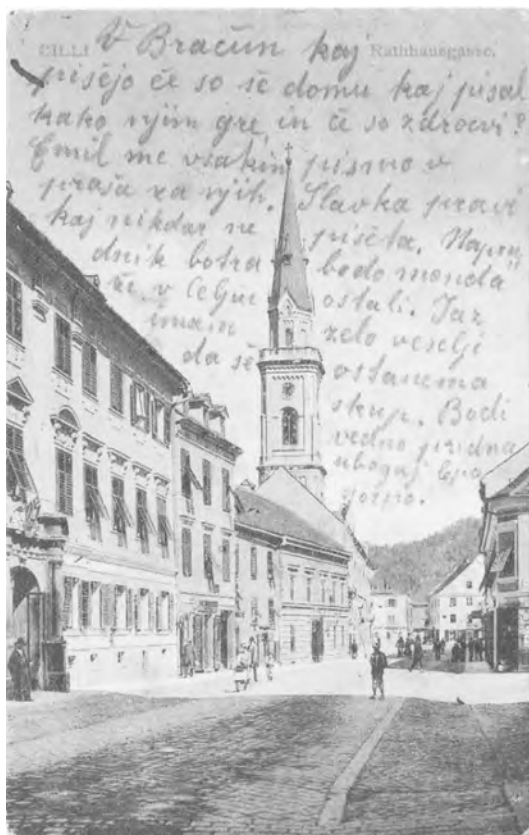 CILLI Rathhausgasse.
V Bračun kaj
pišejo če so še domu kaj pisal
kako njim gre, in če so zdravi?
Emil me vsakim pismo v
praša za njih. Slavka pravi
kaj nikdar ne pišeta.
dnik botra bodo monda
že v Celju ostali. Jaz
imam zelo veselje
da še ostanema
skup. Bodi
vedno pridna
ubogaj lepo